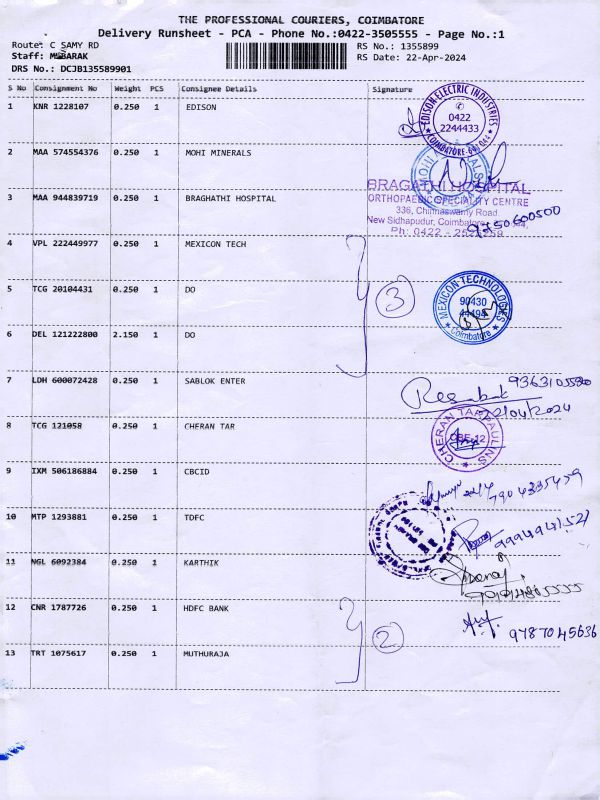 THE PROFESSIONAL COURIERS, COIMBATORE
Delivery Runsheet - PCA - Phone No.:0422-3505555 - Page No.:1
Route: C SAMY RD
RS No.: 1355899
Staff: MUBARAK
RS Date: 22-Apr-2024
DRS No.: DCJB135589901
S No Consignment No Weight PCS Consignee Details Signature
1 KNR 1228107 0.250 1 EDISON
EDISON ELECTRIC INDUSTRIES
0422
2244433
COIMBATORE-641 044
2 MAA 574554376 0.250 1 MOHI MINERALS
3 MAA 944839719 0.250 1 BRAGHATHI HOSPITAL
BRAGATHI HOSPITAL
ORTHOPAEDIC SPECIALITY CENTRE
336, Chinnaswamy Road,
New Sidhapudur, Coimbatore
Ph: 0422 -
4 VPL 222449977 0.250 1 MEXICON TECH
5 TCG 20104431 0.250 1 DO
3
MEXICON TECHNOLOGIES
90430
44494
Coimbatore
6 DEL 121222800 2.150 1 DO
7 LDH 600072428 0.250 1 SABLOK ENTER
22/04/2024
8 TCG 121058 0.250 1 CHERAN TAR
CHERAN TARPAULINS
CBE-12
9 IXM 506186884 0.250 1 CBCID
7904335459
10 MTP 1293881 0.250 1 TDFC
9994941521
11 NGL 6092384 0.250 1 KARTHIK
12 CNR 1787726 0.250 1 HDFC BANK
2
9787045636
13 TRT 1075617 0.250 1 MUTHURAJA